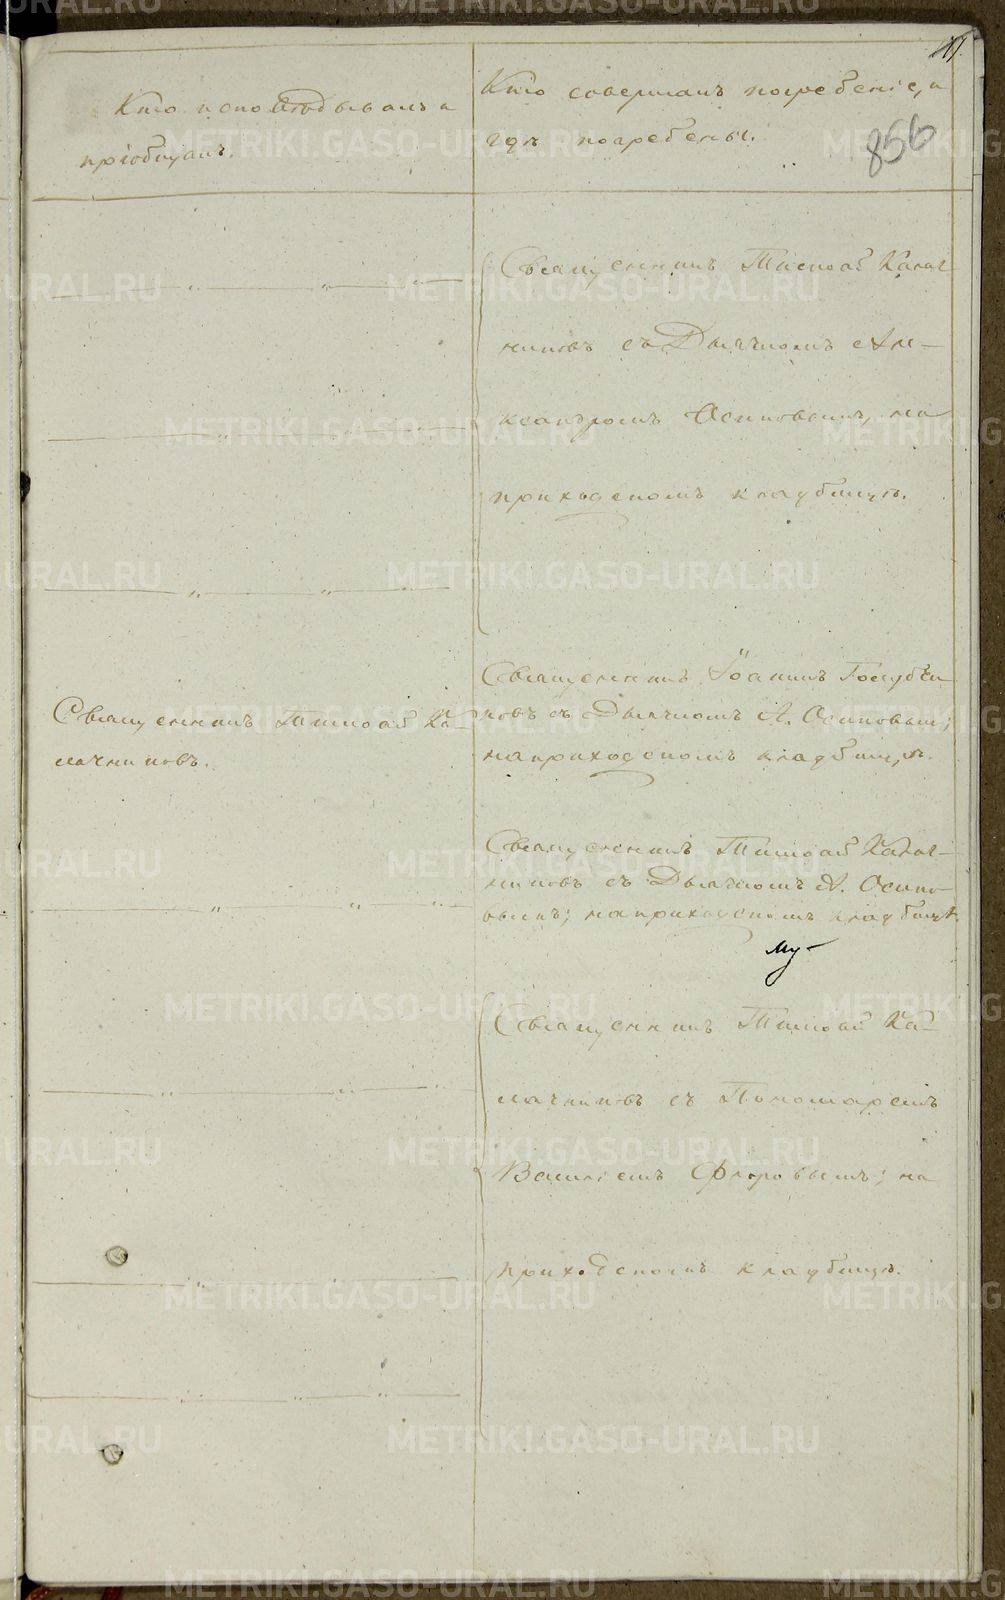 11.
856
Кто исповѣдывалъ и
пріобщалъ.
Кто совершалъ погребеніе, и
гдѣ погребены.
Священникъ Тимоѳей Калач-
никовъ съ Дьячкомъ Але-
ксандромъ Осиповымъ, на
приходскомъ кладбищѣ.
Священникъ Тимоѳей Ка-
лачниковъ.
Священникъ Іоаннъ Голубчи-
ковъ съ Дьячкомъ А. Осиповым;
на приходскомъ кладбищѣ.
Священникъ Тимоѳей Калач-
никовъ съ Дьячкомъ А. Осипо-
вымъ; на приходскомъ кладбищѣ.
Му-
Священникъ Тимоѳей Ка-
лачниковъ съ Пономаремъ
Василіемъ Флоровымъ; на
приходскомъ кладбищѣ.
METRIKI.GASO-URAL.RU